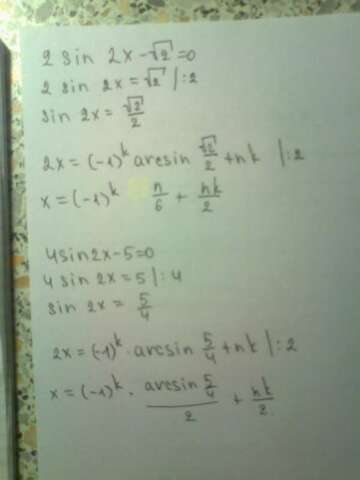 2 sin 2x - √2 = 0
2 sin 2x = √2 |:2
sin 2x = √2/2
2x = (-1)^k arcsin √2/2 + πk |:2
x = (-1)^k π/6 + πk/2
4sin2x-5=0
4 sin 2x = 5 |:4
sin 2x = 5/4
2x = (-1)^k · arcsin 5/4 + πk |:2
x = (-1)^k · arcsin 5/4 / 2 + πk/2